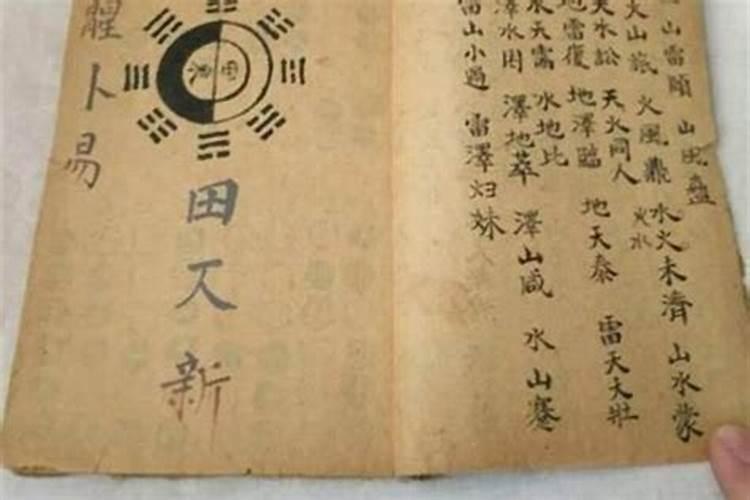 山雷頤 山風蠱
火山旅 火風鼎 火水未濟 山水蒙
天水訟 天火同人
地雷復 地澤臨 地天泰 雷天大壯
水天需 水地比
澤水困 澤地萃 澤山咸 水山蹇
雷山小過 雷澤归妹
田
新
卜易